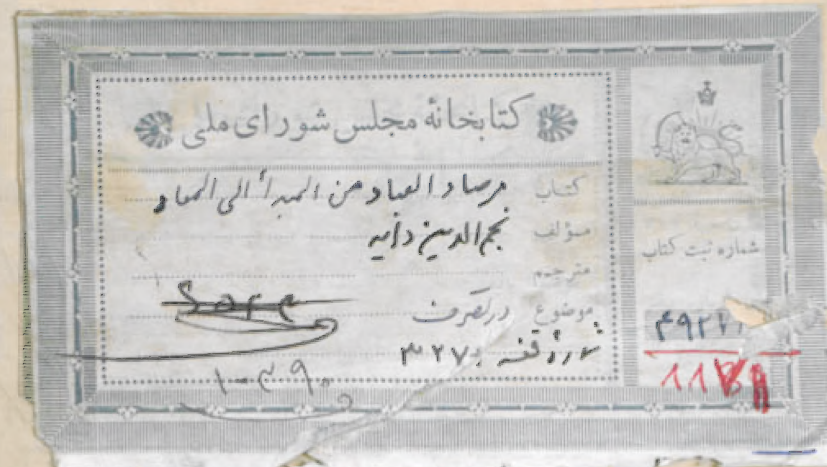 کتابخانهٔ مجلس شورای ملی
کتاب مرصاد العباد من المبدأ الی المعاد
مؤلف نجم الدین دایه
مترجم
موضوع در تصرف
شمارهٔ قفسه ۳۲۷۰
۱۰۳۹۰
شماره ثبت کتاب